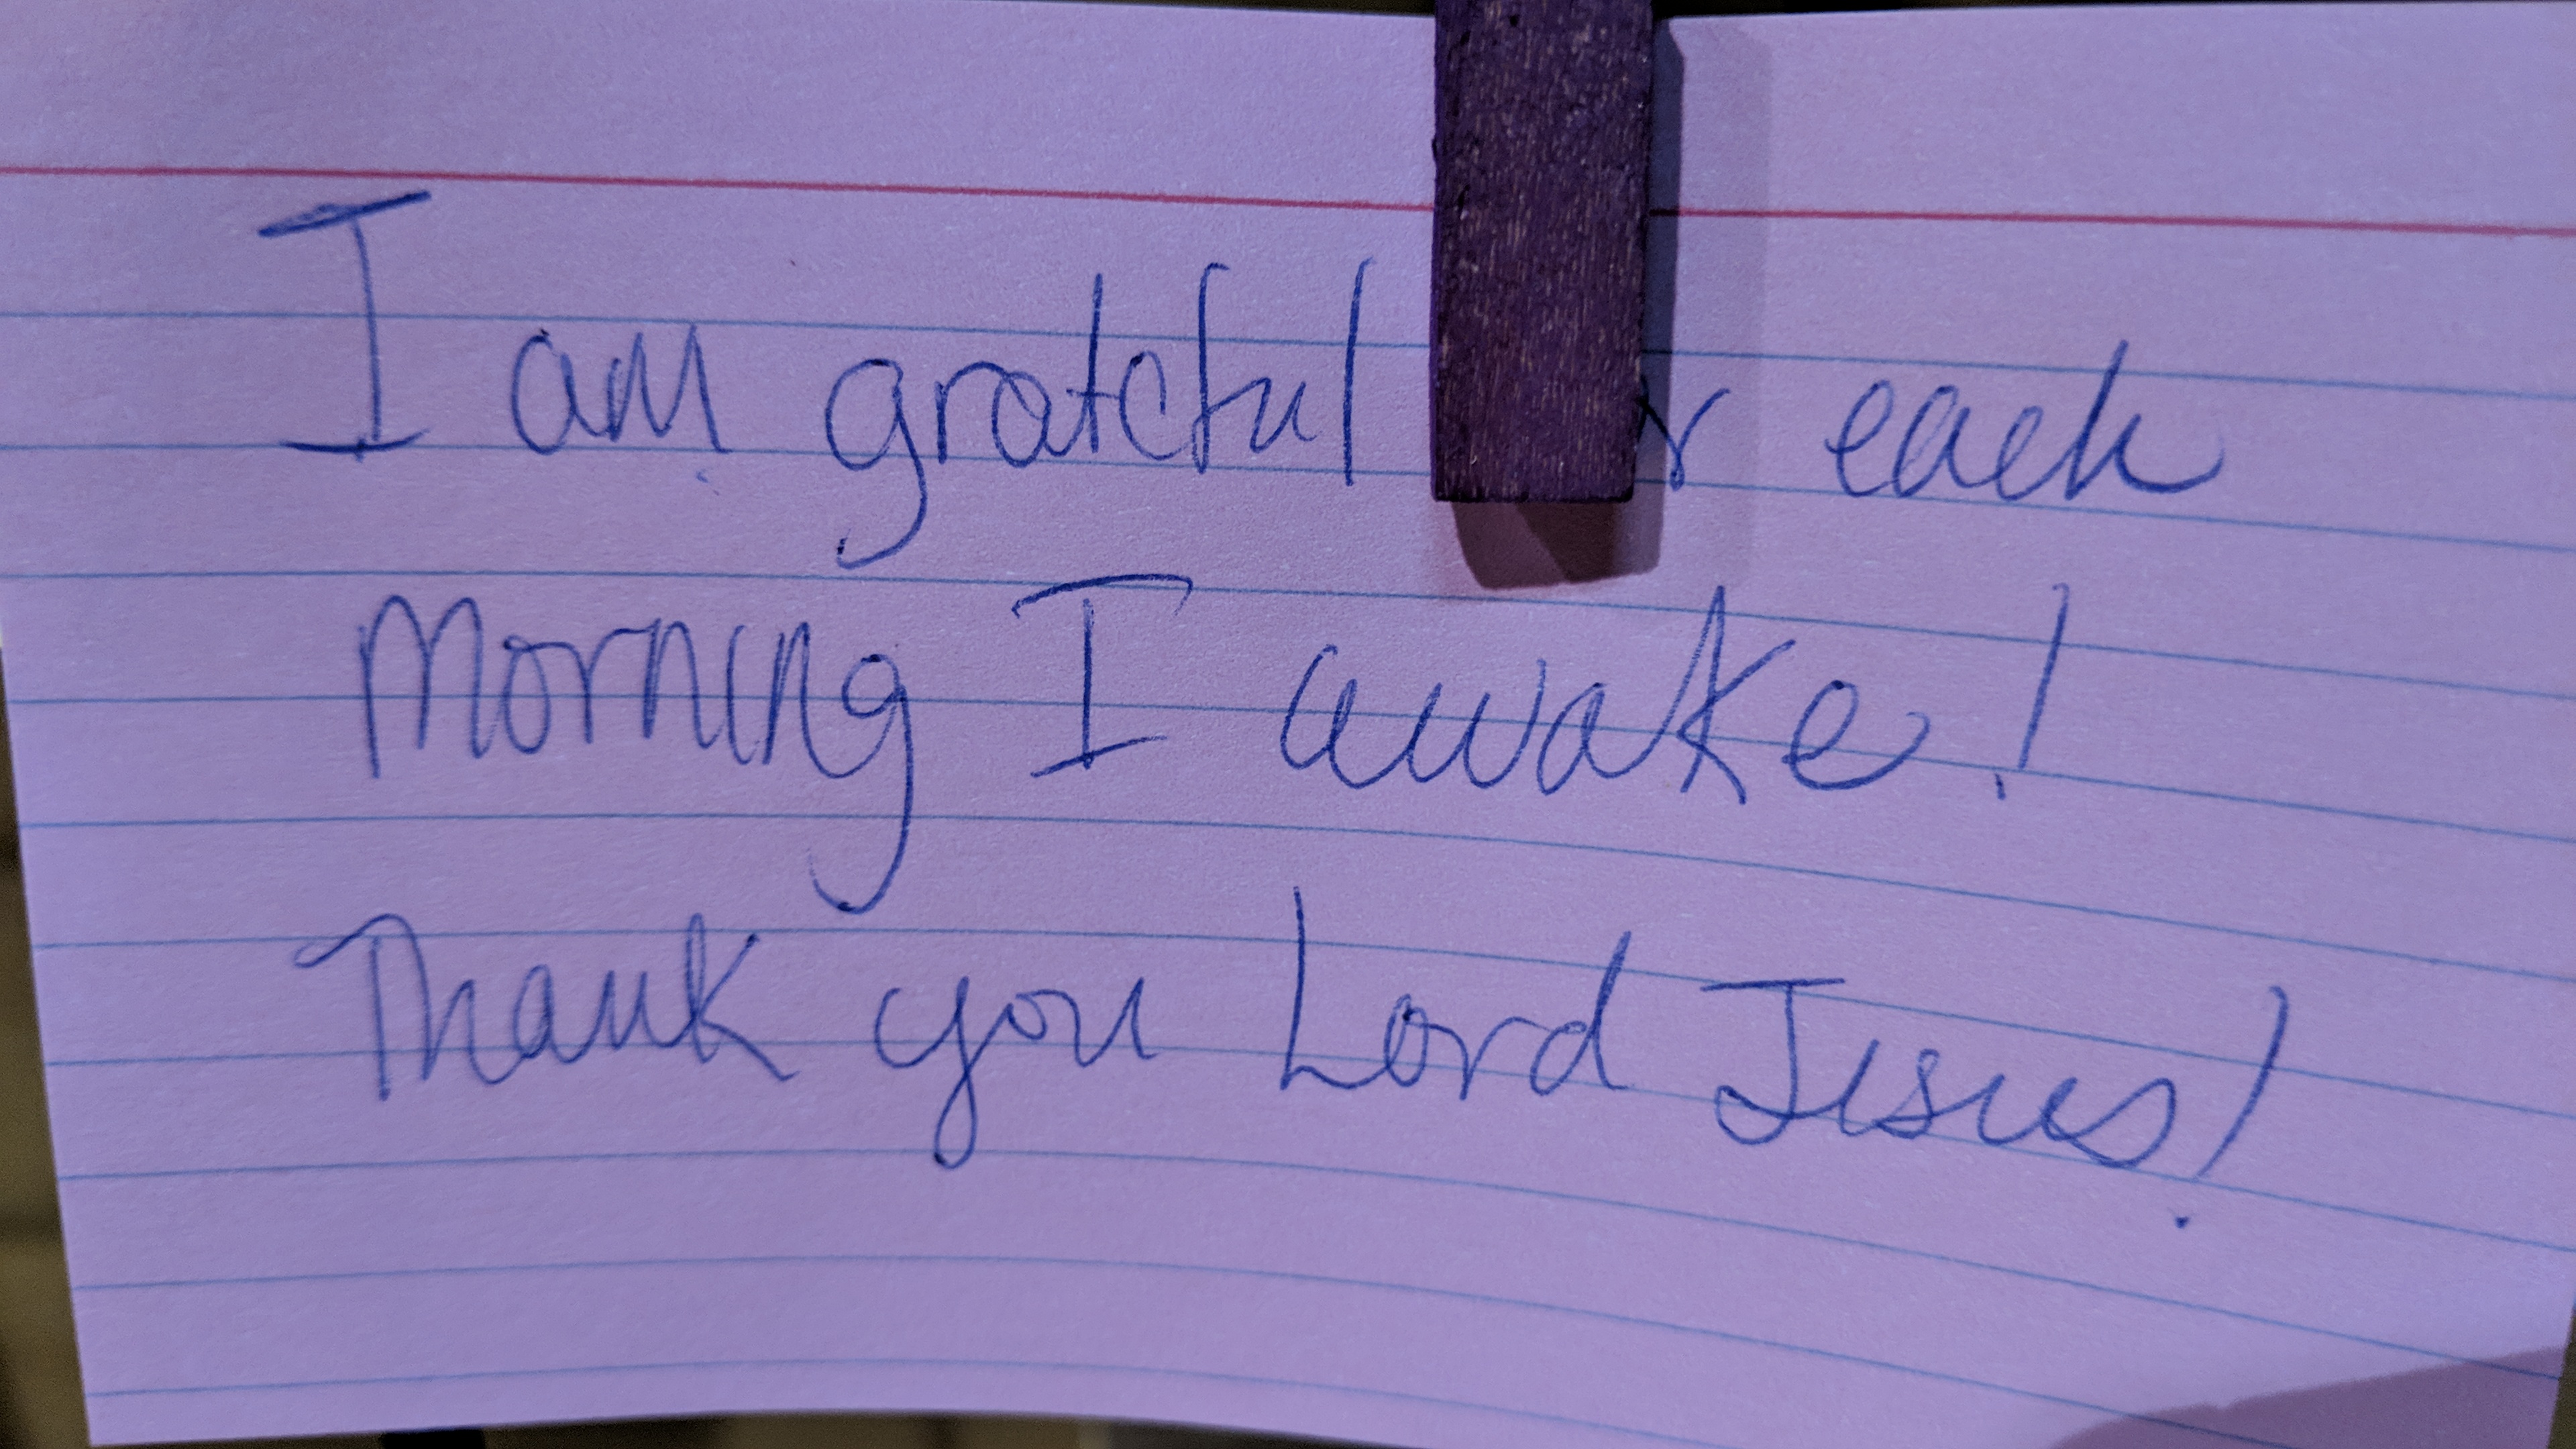 I am grateful r each
morning I awake!
Thank you Lord Jesus!